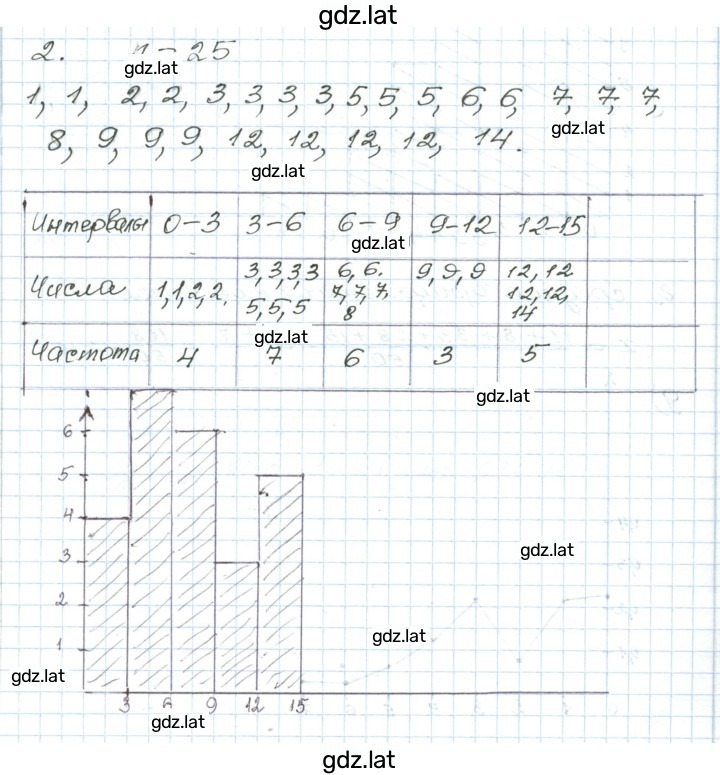 gdz.lat
2. n - 25
gdz.lat
1, 1, 2, 2, 3, 3, 3, 3, 5, 5, 5, 6, 6, 7, 7, 7,
gdz.lat
8, 9, 9, 9, 12, 12, 12, 12, 14.
gdz.lat
Интервалы 0-3 3-6 6-9 9-12 12-15
gdz.lat
Числа 1,1,2,2. 3,3,3,3 5,5,5 6,6. 7,7,7, 8 9,9,9 12,12 12,12, 14
gdz.lat
Частота 4 7 6 3 5
gdz.lat
6
5
4
3
gdz.lat
2
gdz.lat
1
gdz.lat
3 6 9 12 15
gdz.lat
gdz.lat